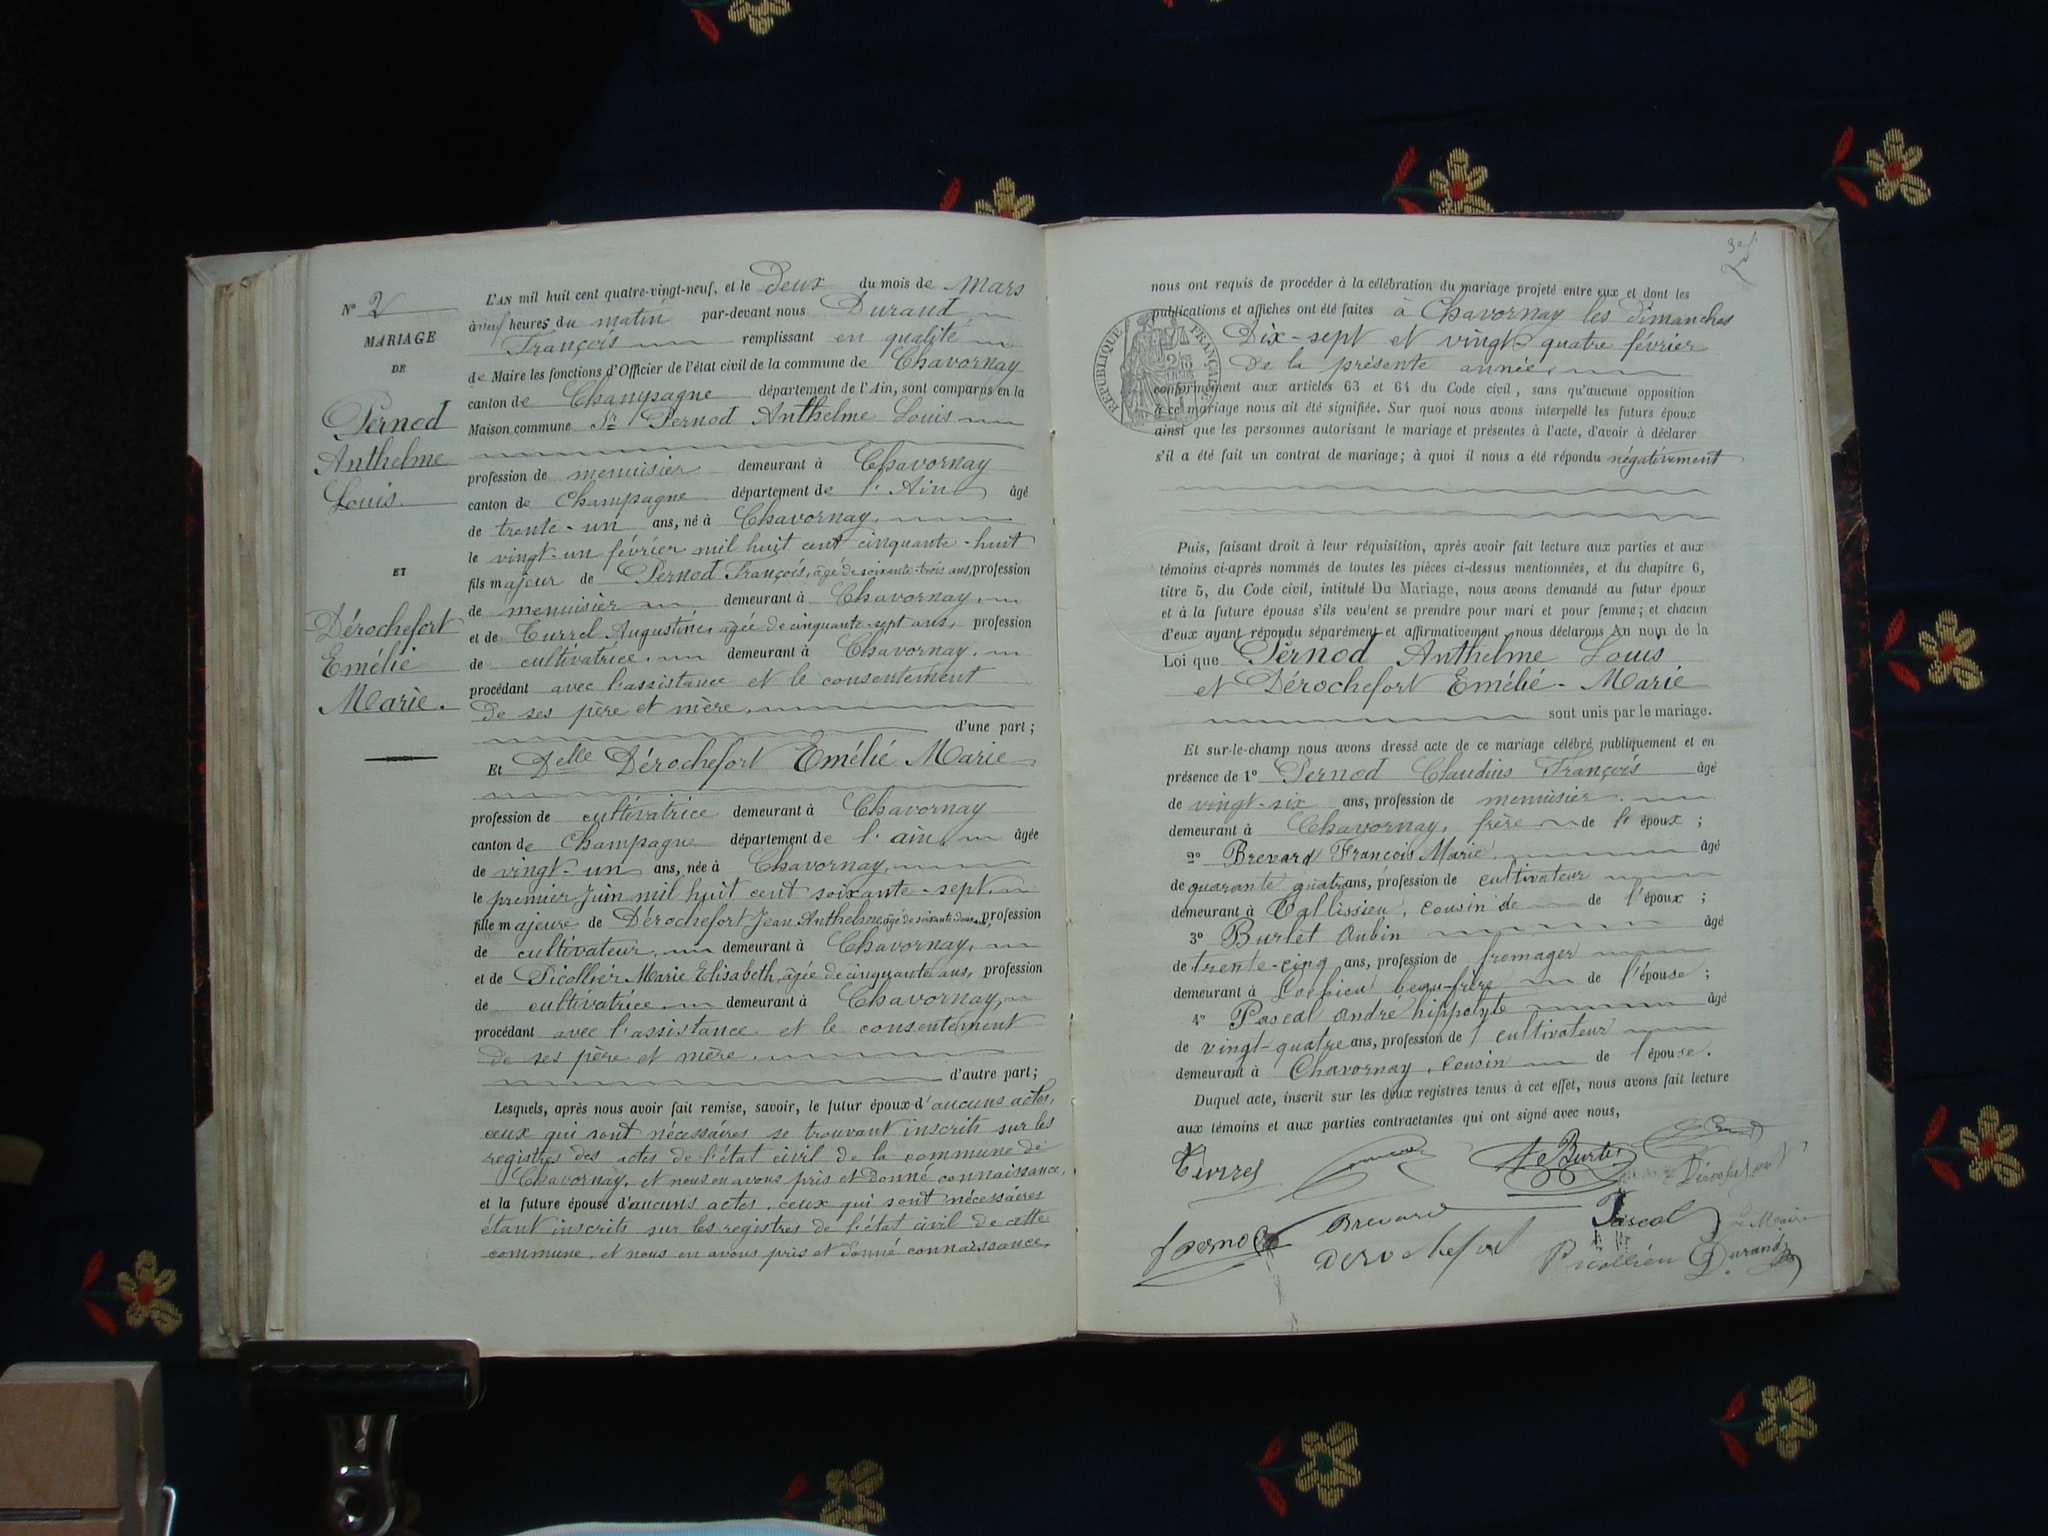 N° 2
MARIAGE
DE
Pernod
Anthelme
Louis.
ET
Dérochefort
Emélie
Marie.
L'AN mil huit cent quatre-vingt-neuf, et le Deux du mois de Mars
à neuf heures du matin par-devant nous Durand
François remplissant en qualité
de Maire les fonctions d'Officier de l'état civil de la commune de Chavornay
canton de Champagne département de l'Ain, sont comparus en la
Maison commune Sr Pernod Anthelme Louis
profession de menuisier demeurant à Chavornay
canton de Champagne département de l'Ain âgé
de trente-un ans, né à Chavornay.
le vingt-un février mil huit cent cinquante-huit
fils majeur de Pernod François, âgé de soixante-trois ans, profession
de menuisier demeurant à Chavornay.
et de Turrel Augustine, âgée de cinquante-sept ans, profession
de cultivatrice. demeurant à Chavornay.
procédant avec l'assistance et le consentement
de ses père et mère.
d'une part;
Et Delle Dérochefort Emélié Marie
profession de cultivatrice demeurant à Chavornay
canton de Champagne département de l'ain. âgée
de vingt-un ans, née à Chavornay.
le premier Juin mil huit cent soixante-sept.
fille majeure de Dérochefort Jean Anthelme âgé de soixante-deux ans, profession
de cultivateur demeurant à Chavornay.
et de Picollier Marie Elisabeth, âgée de cinquante ans, profession
de cultivatrice. demeurant à Chavornay,
procédant avec l'assistance et le consentement
de ses père et mère.
d'autre part;
Lesquels, après nous avoir fait remise, savoir, le futur époux d'aucuns actes,
ceux qui sont nécessaires se trouvant inscrits sur les
registres des actes de l'état civil de la commune de
Chavornay, et nous en avons pris et donné connaissance,
et la future épouse d'aucuns actes, ceux qui sont nécessaires
étant inscrits sur les registres de l'état civil de cette
commune, et nous en avons pris et donné connaissance,
nous ont requis de procéder à la célébration du mariage projeté entre eux et dont les
publications et affiches ont été faites à Chavornay les dimanches
Dix-sept et vingt-quatre février
de la présente année.
REPUBLIQUE FRANÇAISE
conformément aux articles 63 et 64 du Code civil, sans qu'aucune opposition
à ce mariage nous ait été signifiée. Sur quoi nous avons interpellé les futurs époux
ainsi que les personnes autorisant le mariage et présentes à l'acte, d'avoir à déclarer
s'il a été fait un contrat de mariage; à quoi il nous a été répondu négativement
Puis, faisant droit à leur réquisition, après avoir fait lecture aux parties et aux
témoins ci-après nommés de toutes les pièces ci-dessus mentionnées, et du chapitre 6,
titre 5, du Code civil, intitulé Du Mariage, nous avons demandé au futur époux
et à la future épouse s'ils veulent se prendre pour mari et pour femme; et chacun
d'eux ayant répondu séparément et affirmativement, nous déclarons An nom de la
Loi que Pernod Anthelme Louis
et Dérochefort Emélié-Marie
sont unis par le mariage.
Et sur-le-champ nous avons dressé acte de ce mariage célébré publiquement et en
présence de 1° Pernod Claudius François âgé
de vingt-six ans, profession de menuisier
demeurant à Chavornay, frère de l'époux;
2° Brevard François Marie âgé
de quarante quatre ans, profession de cultivateur
demeurant à Tallissieu, cousin de de l'époux;
3° Burlet Aubin âgé
de trente-cinq ans, profession de fromager
demeurant à beau-frère de l'épouse;
4° Pascal André hippolyte âgé
de vingt-quatre ans, profession de cultivateur
demeurant à Chavornay, cousin de l'épouse.
Duquel acte, inscrit sur les deux registres tenus à cet effet, nous avons fait lecture
aux témoins et aux parties contractantes qui ont signé avec nous,
Burlet
Dérochefort
Brevard
Pascal
Le Maire
Pernod
Derochefort
Picollier
Durand